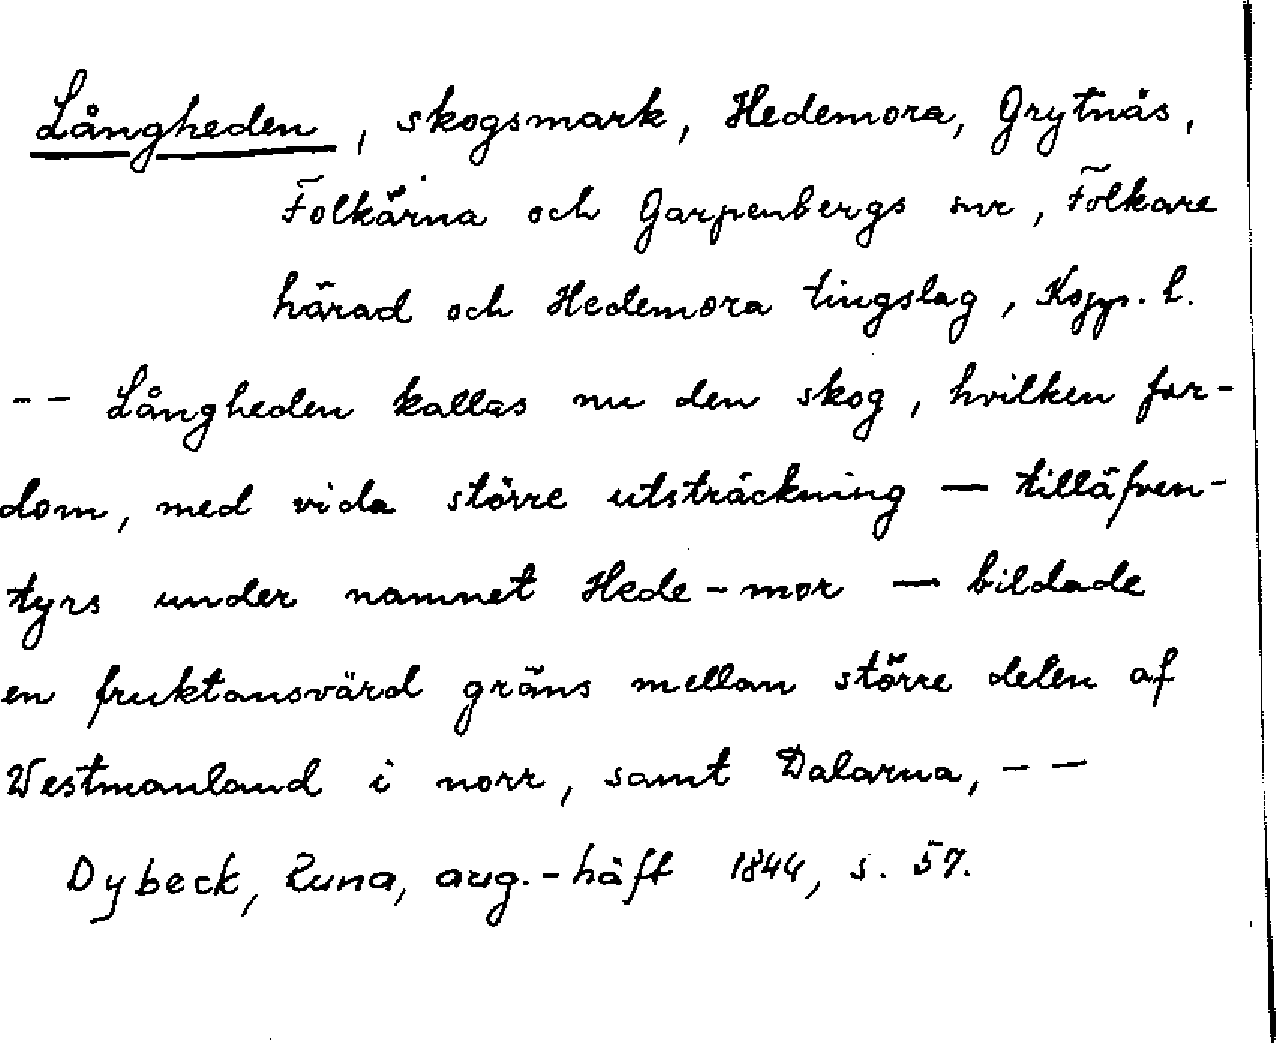 Långheden, skogsmark, Hedemora, Grytnäs,
Folkärna och Garpenbergs snr, Folkare
härad och Hedemora tingslag, Kopp. l.
-- Långheden kallas nu den skog, hvilken for-
dom, med vida större utsträckning — tilläfven-
tyrs under namnet Hede-mor — bildade
en fruktansvärd gräns mellan större delen af
Westmanland i norr, samt Dalarna, --
Dybeck, Runa, aug.-häft 1844, s. 57.